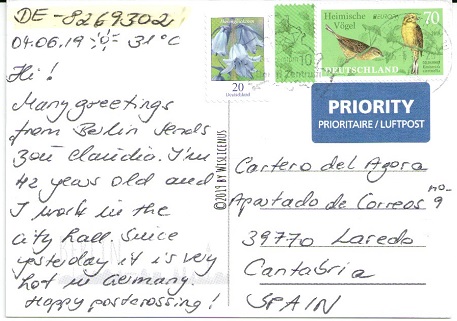 DE-8269302
04.06.19 31°C
Hi!
Many greetings
from Berlin sends
you Claudia. I'm
42 years old and
I work in the
city hall. Since
yesterday it is very
hot in Germany.
Happy postcrossing!
©2019 BY WESLICENIUS
20
Deutschland
10
Zentrum
Heimische
Vögel
EUROPA
70
DEUTSCHLAND
PRIORITY
PRIORITAIRE / LUFTPOST
Cartero del Agora
Apartado de Correos no. 9
39770 Laredo
Cantabria
SPAIN